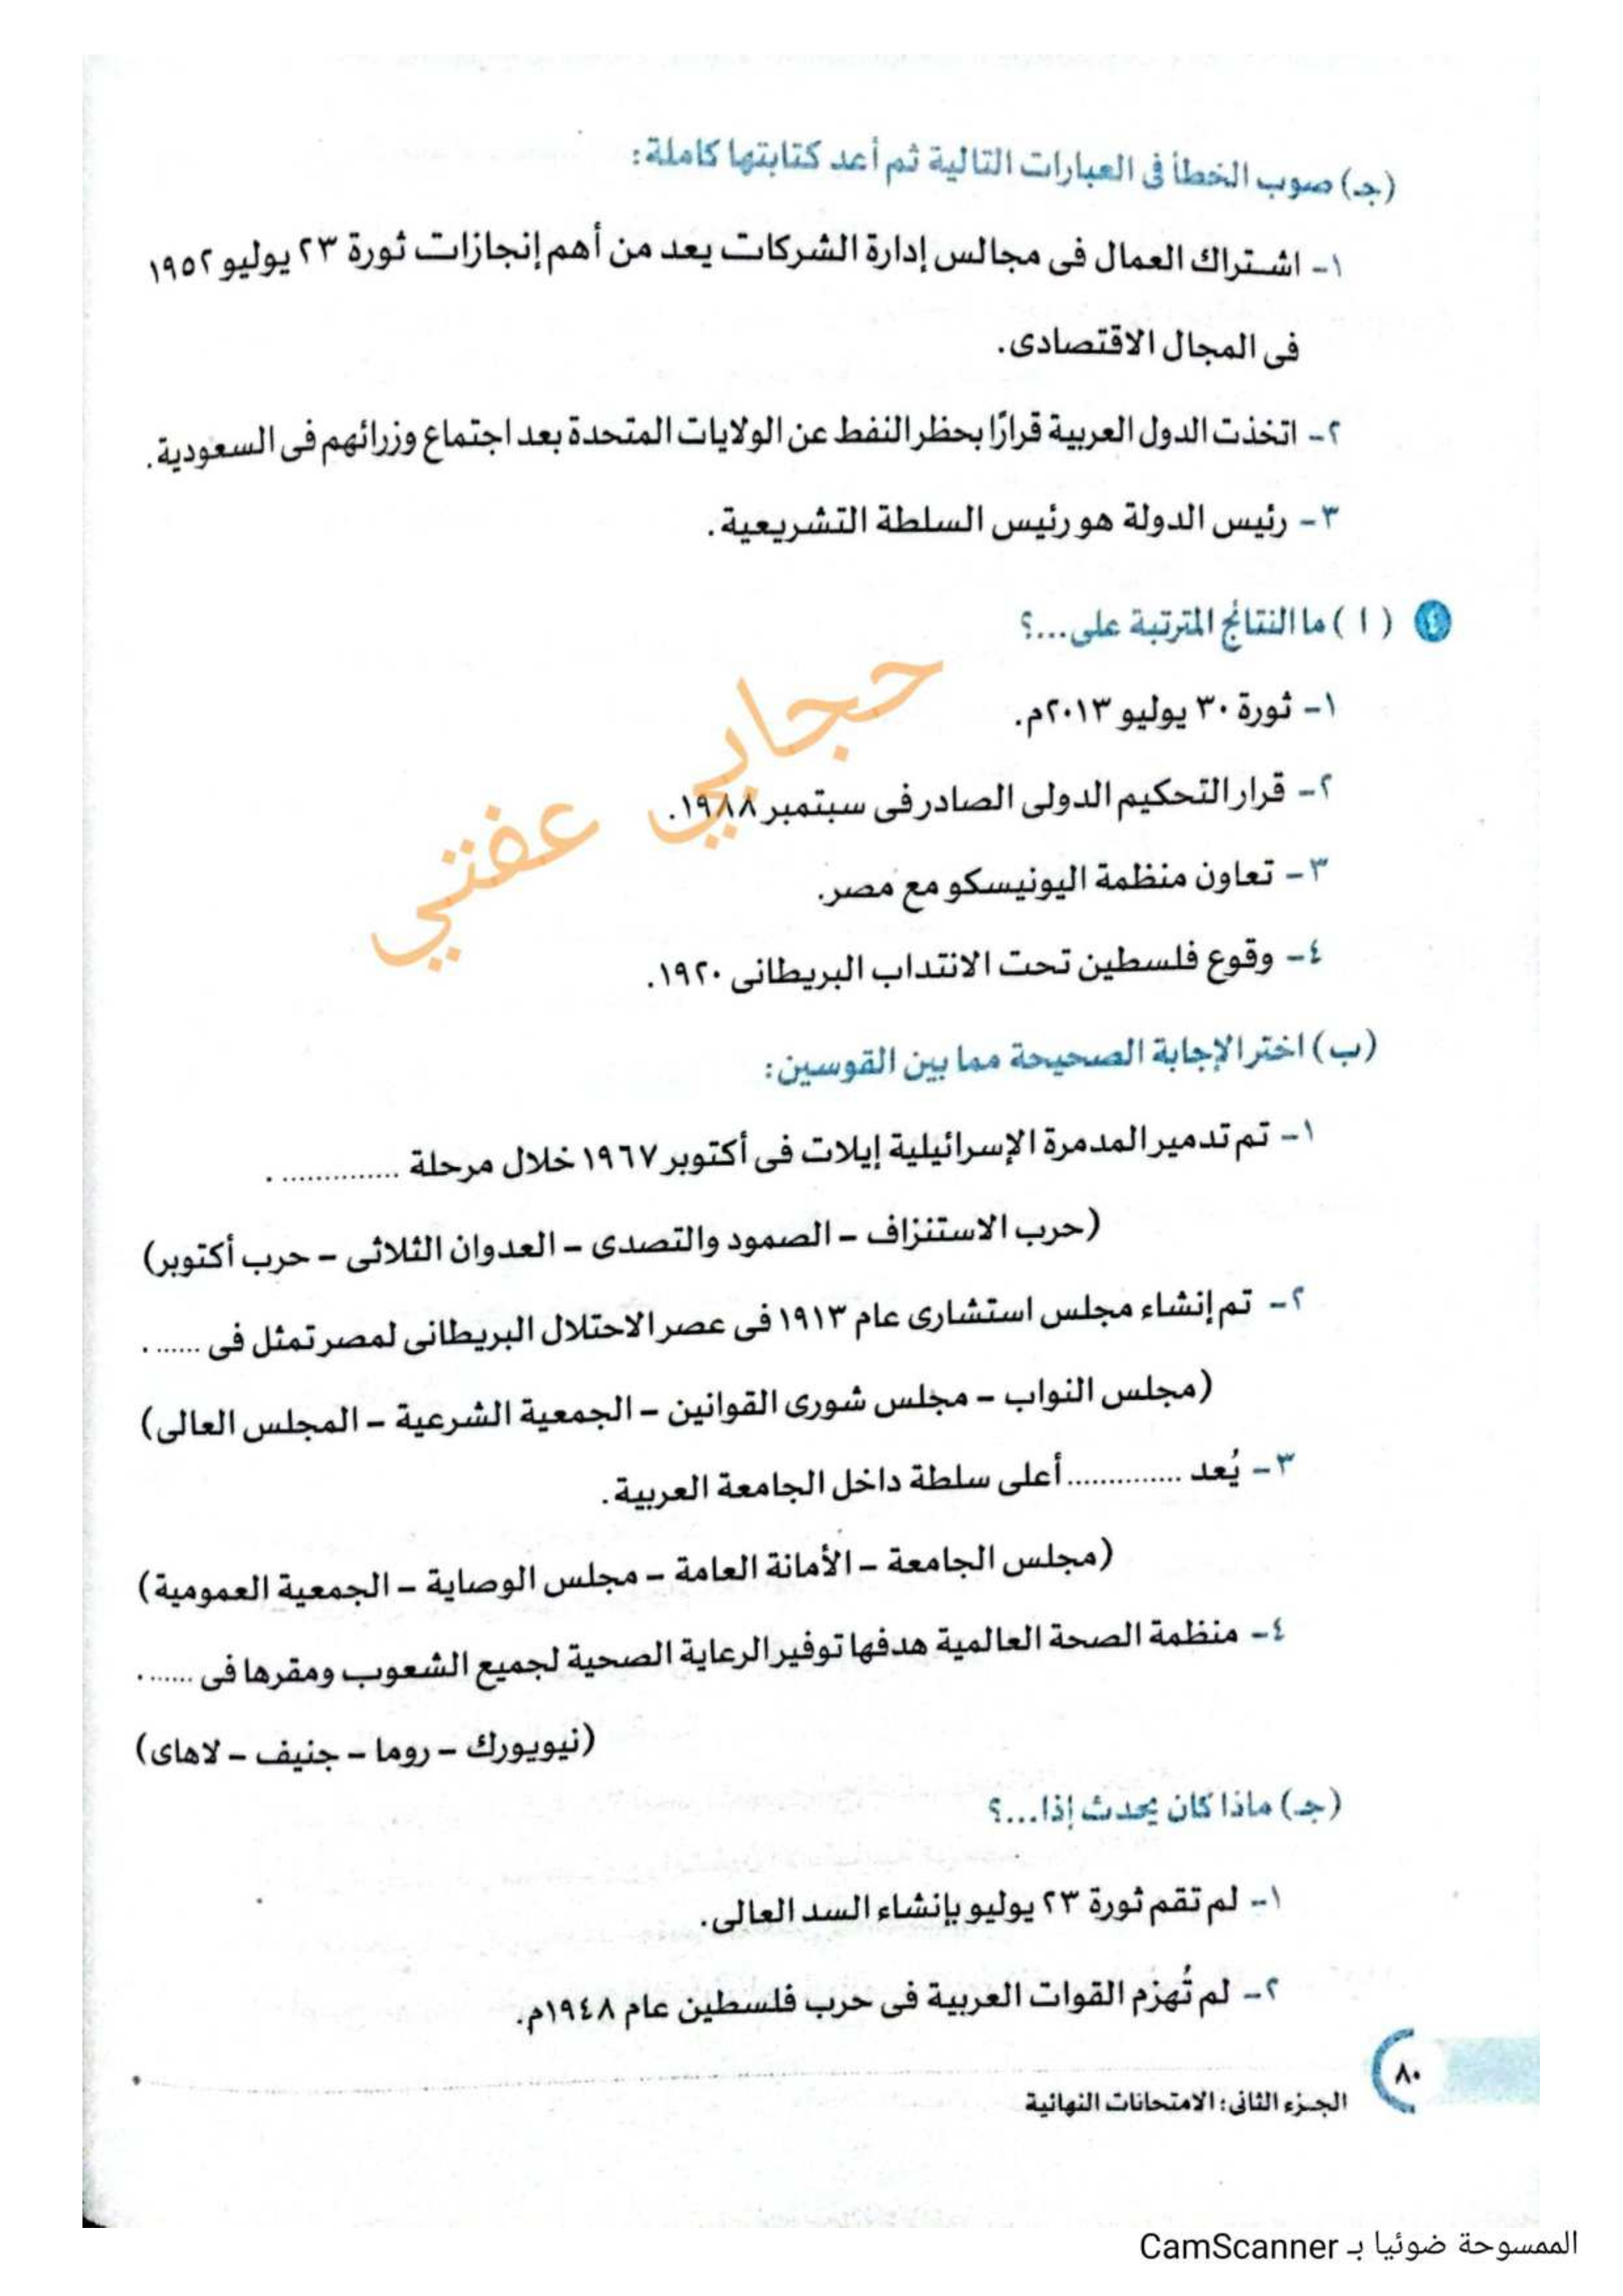 (جـ) صوب الخطأ فى العبارات التالية ثم أعد كتابتها كاملة:
١- اشتراك العمال فى مجالس إدارة الشركات يعد من أهم إنجازات ثورة ٢٣ يوليو ١٩٥٢
فى المجال الاقتصادى.
٢- اتخذت الدول العربية قرارًا بحظر النفط عن الولايات المتحدة بعد اجتماع وزرائهم فى السعودية.
٣- رئيس الدولة هو رئيس السلطة التشريعية.
٤ ( ا ) ما النتائج المترتبة على...؟
١- ثورة ٣٠ يوليو ٢٠١٣م.
٢- قرار التحكيم الدولى الصادر فى سبتمبر ١٩٨٨.
٣- تعاون منظمة اليونيسكو مع مصر.
٤- وقوع فلسطين تحت الانتداب البريطانى ١٩٢٠.
حجابي عفتي
(ب) اختر الإجابة الصحيحة مما بين القوسين:
١- تم تدمير المدمرة الإسرائيلية إيلات فى أكتوبر ١٩٦٧ خلال مرحلة .............. .
(حرب الاستنزاف – الصمود والتصدى – العدوان الثلاثى – حرب أكتوبر)
٢- تم إنشاء مجلس استشارى عام ١٩١٣ فى عصر الاحتلال البريطانى لمصر تمثل فى ...... .
(مجلس النواب – مجلس شورى القوانين – الجمعية الشرعية – المجلس العالى)
٣- يُعد .............. أعلى سلطة داخل الجامعة العربية.
(مجلس الجامعة – الأمانة العامة – مجلس الوصاية – الجمعية العمومية)
٤- منظمة الصحة العالمية هدفها توفير الرعاية الصحية لجميع الشعوب ومقرها فى ...... .
(نيويورك – روما – جنيف – لاهاى)
(جـ) ماذا كان يحدث إذا...؟
١- لم تقم ثورة ٢٣ يوليو بإنشاء السد العالى.
٢- لم تُهزم القوات العربية فى حرب فلسطين عام ١٩٤٨م.
٨٠
الجزء الثانى: الامتحانات النهائية
الممسوحة ضوئيا بـ CamScanner